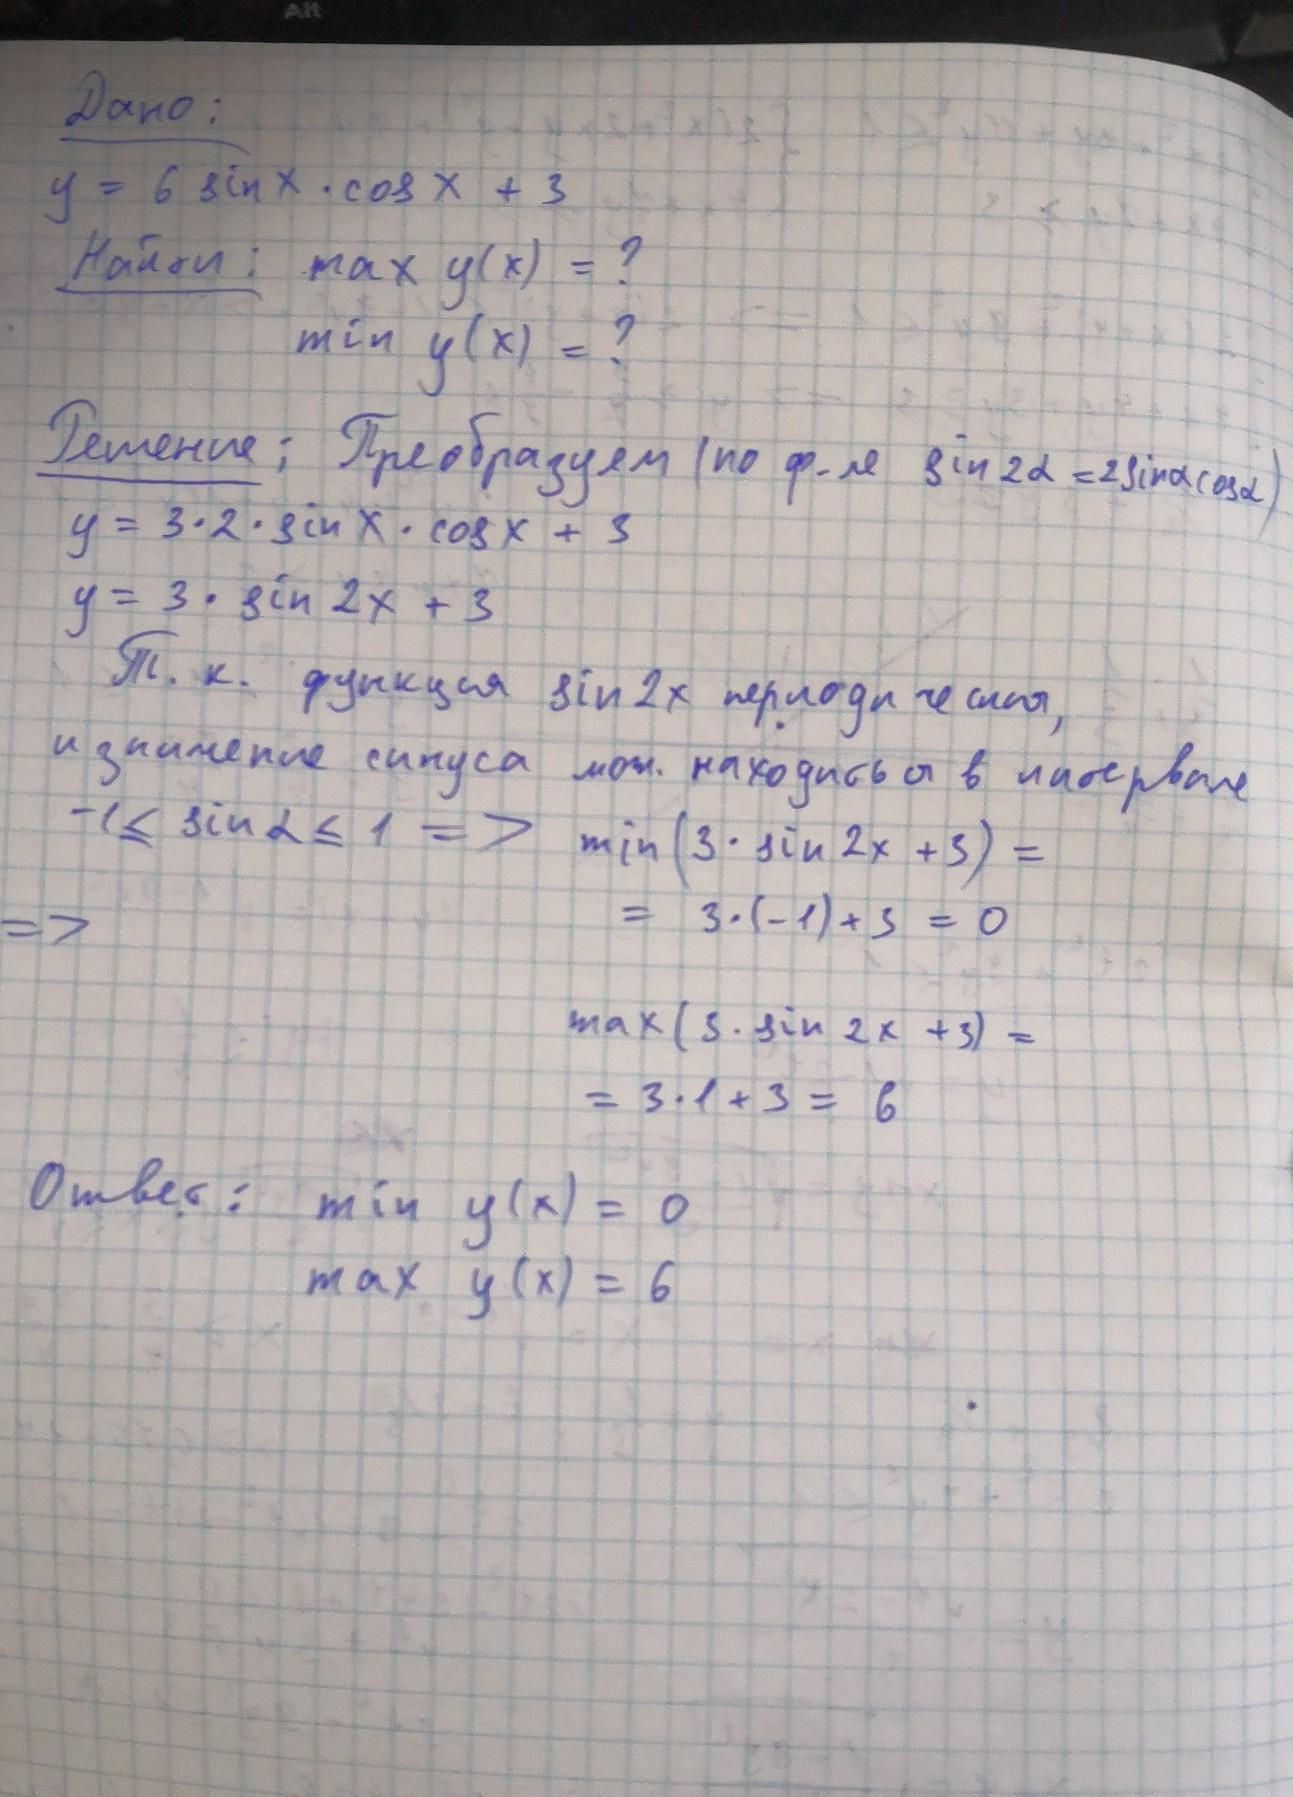 Alt
Дано:
y = 6 sin x · cos x + 3
Найти: max y(x) = ?
min y(x) = ?
Решение: Преобразуем (по ф-ле sin 2α = 2 sin α cos α)
y = 3 · 2 · sin x · cos x + 3
y = 3 · sin 2x + 3
Т. к. функция sin 2x периодическая,
и значение синуса мож. находиться в интервале
-1 ≤ sin α ≤ 1 => min (3 · sin 2x + 3) =
=> = 3 · (-1) + 3 = 0
max (3 · sin 2x + 3) =
= 3 · 1 + 3 = 6
Ответ: min y(x) = 0
max y(x) = 6